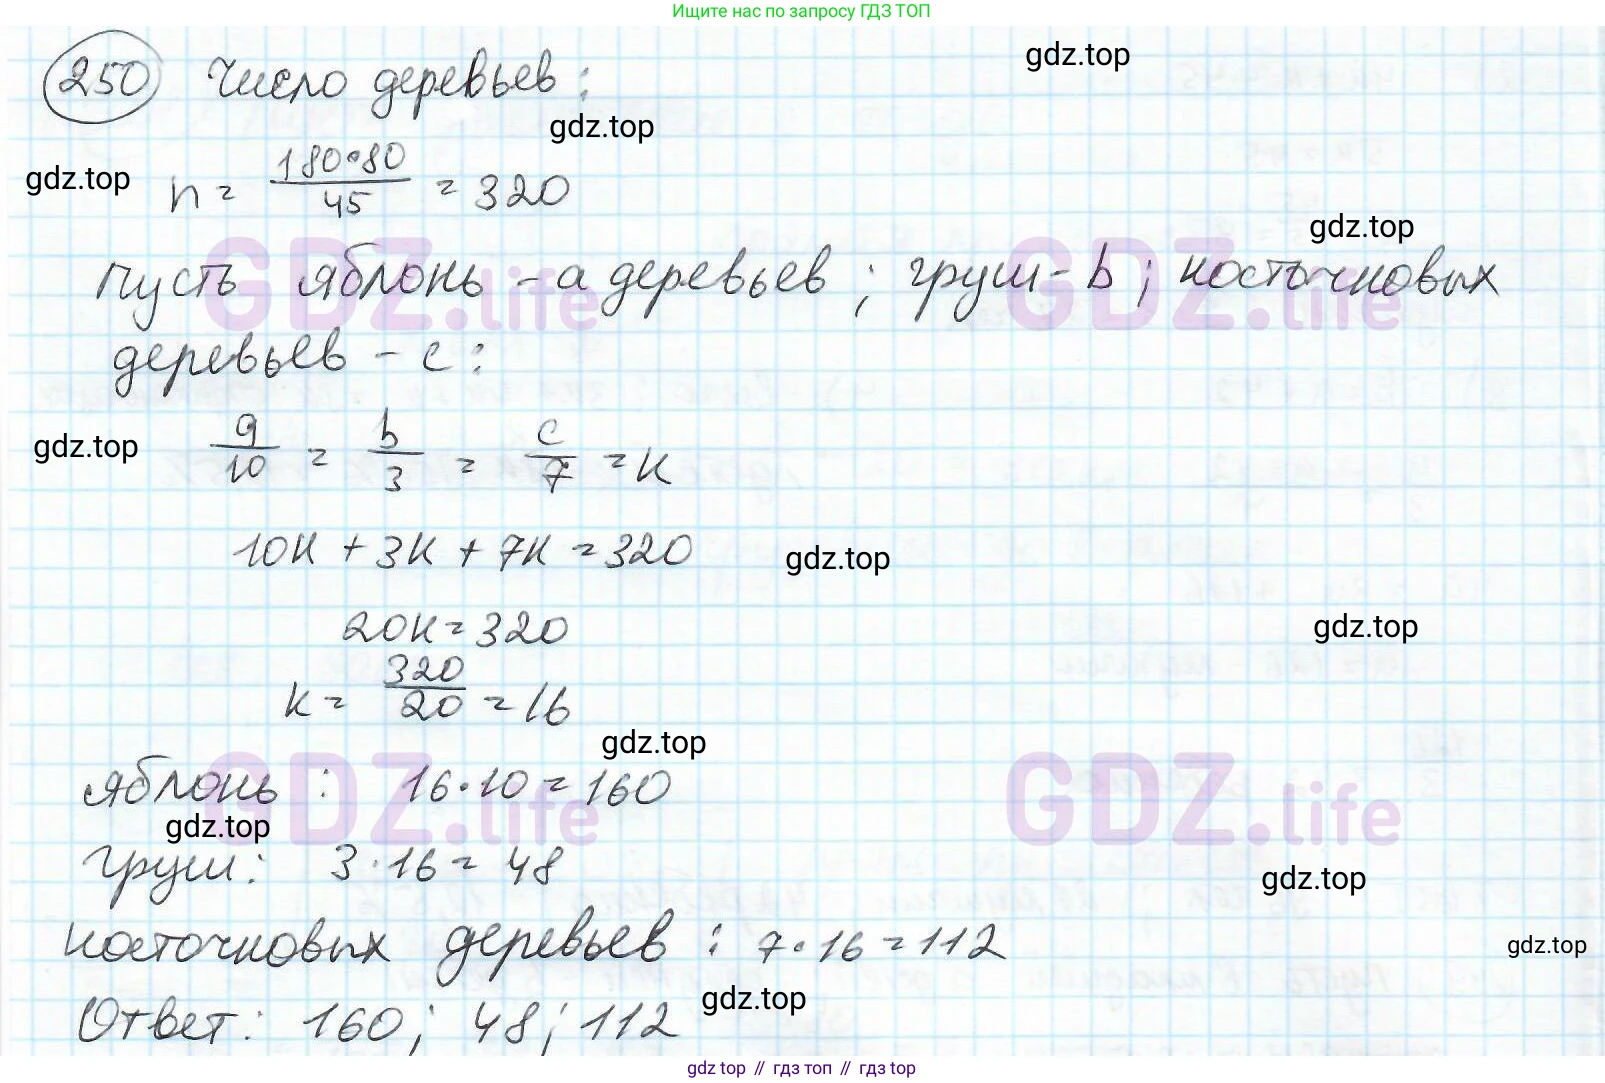 Ищите нас по запросу ГДЗ ТОП
250 Число деревьев:
gdz.top
gdz.top
gdz.top
n = 180·80/45 = 320
gdz.top
GDZ.life GDZ.life
Пусть яблонь - a деревьев; груш - b; косточковых
деревьев - c:
gdz.top
a/10 = b/3 = c/7 = к
10к + 3к + 7к = 320
gdz.top
20к = 320
gdz.top
к = 320/20 = 16
gdz.top
GDZ.life GDZ.life
яблонь: 16·10 = 160
gdz.top
груш: 3·16 = 48
gdz.top
косточковых деревьев: 7·16 = 112
gdz.top
gdz.top
Ответ: 160; 48; 112
gdz top // гдз топ // gdz top